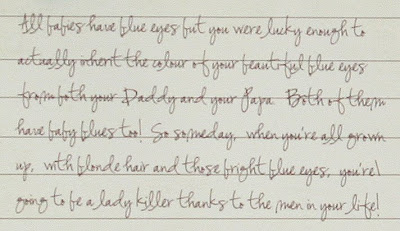 All babies have blue eyes but you were lucky enough to
actually inherit the colour of your beautiful blue eyes
from both your Daddy and your Papa. Both of them
have baby blues too! So someday, when you're all grown
up, with blonde hair and those bright blue eyes, you're
going to be a lady killer thanks to the men in your life!